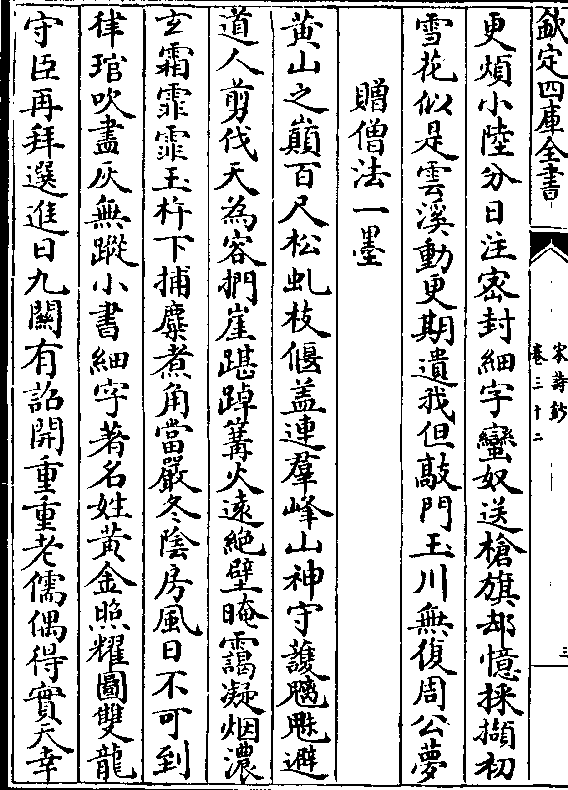 欽定四庫全書
宋詩鈔
卷三十二
三
更煩小陸分日注密封細字蠻奴送槍旗却憶採擷初
雪花似是雲溪動更期遺我但敲門玉川無復周公夢
贈僧法一墨
黄山之巔百尺松虬枝偃盖連羣峰山神守護魑魅避
道人剪伐天為容捫崖踸踔篝火遠絶壁晻靄凝烟濃
玄霜霏霏玉杵下捕麋煮角當嚴冬陰房風日不可到
律琯吹盡灰無蹤小書細字著名姓黄金照耀圖雙龍
守臣再拜選進日九關有詔開重重老儒偶得實天幸